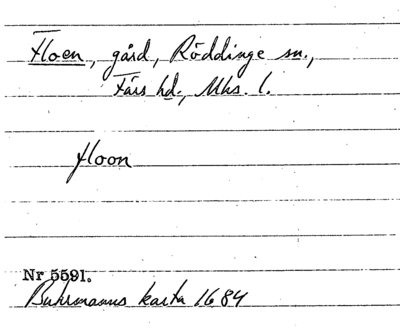 Floen, gård, Röddinge sn.,
Färs hd., Mhs. l.
floon
Nr 5591.
Buhrmanns karta 1684